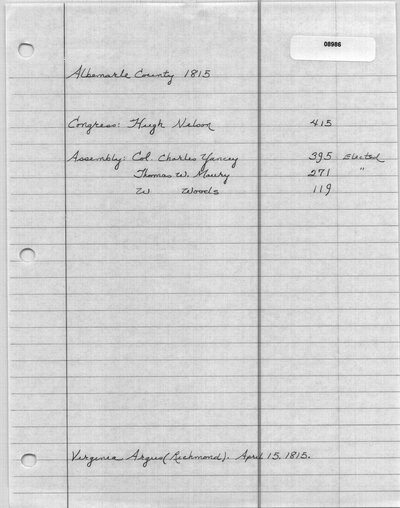 08986
Albemarle County 1815
Congress: Hugh Nelson 415
Assembly: Col. Charles Yancey 395 Elected
Thomas W. Maury 271 "
W Woods 119
Virginia Argus (Richmond). April 15, 1815.